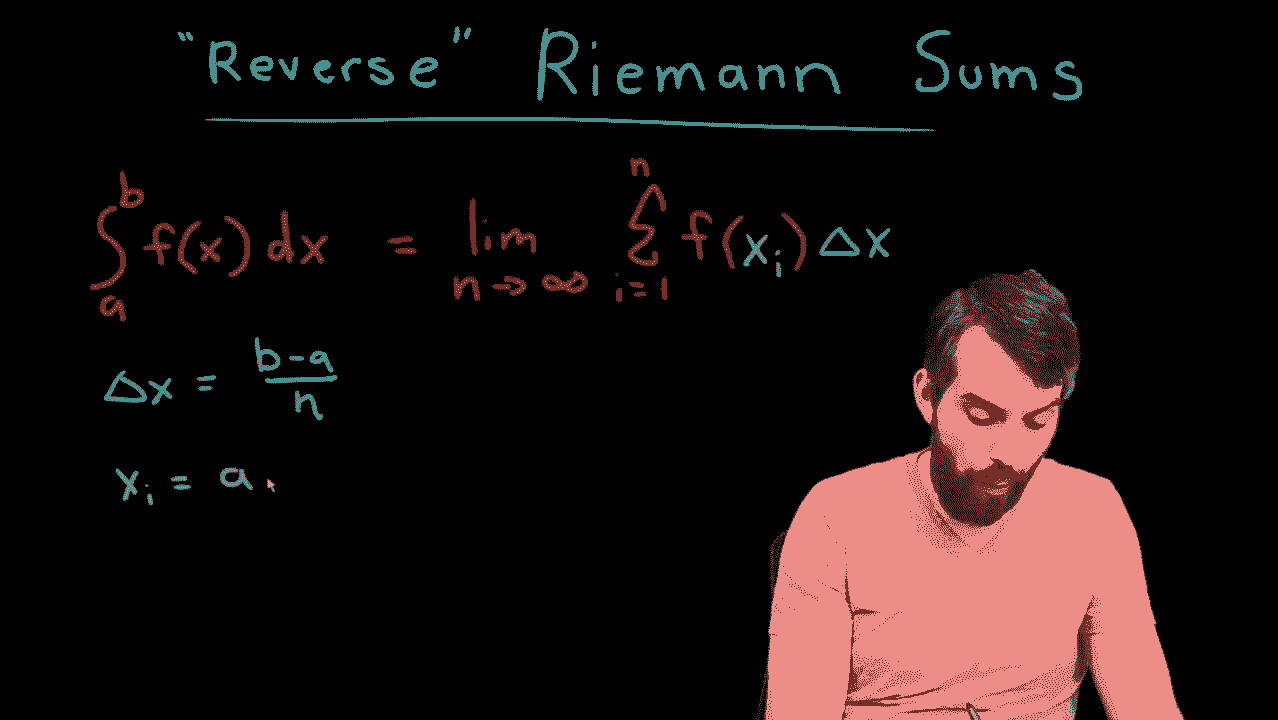 "Reverse" Riemann Sums
∫_a^b f(x) dx = lim_{n→∞} Σ_{i=1}^n f(x_i) Δx
Δx = (b-a)/n
x_i = a